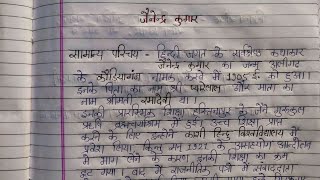 जैनेन्द्र कुमार
सामान्य परिचय - हिन्दी जगत के सर्वश्रेष्ठ कथाकार
जैनेन्द्र कुमार का जन्म अलीगढ़
के कौड़ियागंज नामक कस्बे में 1905 ई॰ को हुआ।
इनके पिता का नाम श्री प्यारेलाल और माता का
नाम श्रीमती रामादेवी था।
इनकी प्रारम्भिक शिक्षा हस्तिनापुर के जैन गुरुकुल
ऋषि ब्रह्मचर्याश्रम में हुई और उच्च शिक्षा प्राप्त
करने के लिए इन्होंने काशी हिन्दू विश्वविद्यालय में
प्रवेश लिया, किन्तु सन् 1921 के असहयोग आन्दोलन
में भाग लेने के कारण इनकी शिक्षा का क्रम
टूट गया। बाद में राजनीतिक पत्रों में संवाददाता